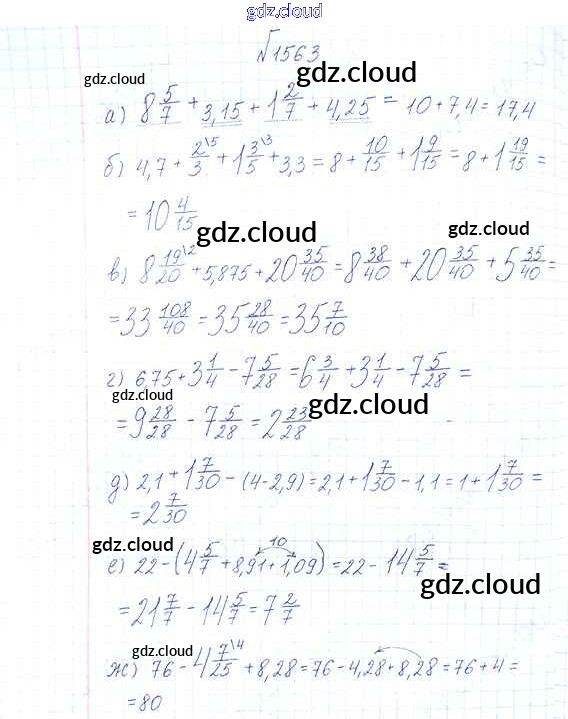 gdz.cloud
№1563
gdz.cloud gdz.cloud
а) 8 5/7 + 3,15 + 1 2/7 + 4,25 = 10 + 7,4 = 17,4
б) 4,7 + 2\5/3 + 1 3\3/5 + 3,3 = 8 + 10/15 + 1 9/15 = 8 + 1 19/15 =
= 10 4/15
gdz.cloud gdz.cloud
в) 8 19\2/20 + 5,875 + 20 35/40 = 8 38/40 + 20 35/40 + 5 35/40 =
= 33 108/40 = 35 28/40 = 35 7/10
г) 6,75 + 3 1/4 - 7 5/28 = 6 3/4 + 3 1/4 - 7 5/28 =
gdz.cloud gdz.cloud
= 9 28/28 - 7 5/28 = 2 23/28
д) 2,1 + 1 7/30 - (4 - 2,9) = 2,1 + 1 7/30 - 1,1 = 1 + 1 7/30 =
= 2 7/30
gdz.cloud
10
е) 22 - (4 5/7 + 8,91 + 1,09) = 22 - 14 5/7 =
gdz.cloud
= 21 7/7 - 14 5/7 = 7 2/7
gdz.cloud
ж) 76 - 4 7\4/25 + 8,28 = 76 - 4,28 + 8,28 = 76 + 4 =
= 80
gdz.cloud